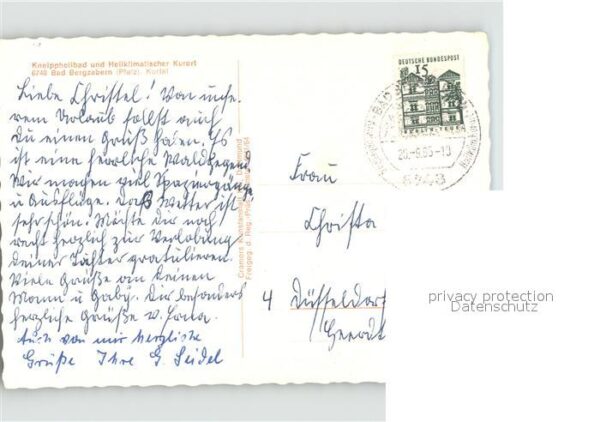 Kneippheilbad und Heilklimatischer Kurort
6748 Bad Bergzabern (Pfalz), Kurtal
Liebe Christel! Von unse-
rem Urlaub sollst auch
Du einen Gruß haben. Es
ist eine herrliche Waldgegend
Wir machen viel Spaziergänge
u Ausflüge. Das Wetter ist
sehr schön. Möchte dir noch
recht herzlich zur Verlobung
deiner Tochter gratulieren.
Viele Grüße an Deinen
Mann u Gaby. Dir besonders
herzliche Grüße v. Erna.
Auch von mir herzliche
Grüße Ihre G. Seidel
Cramers Kunstanstalt Dortmund
Freigeg. d. Reg.
DEUTSCHE BUNDESPOST
15
BERLIN-TEGEL
6748
Frau
Christa
4 Düsseldorf
Heerdt
privacy protection
Datenschutz